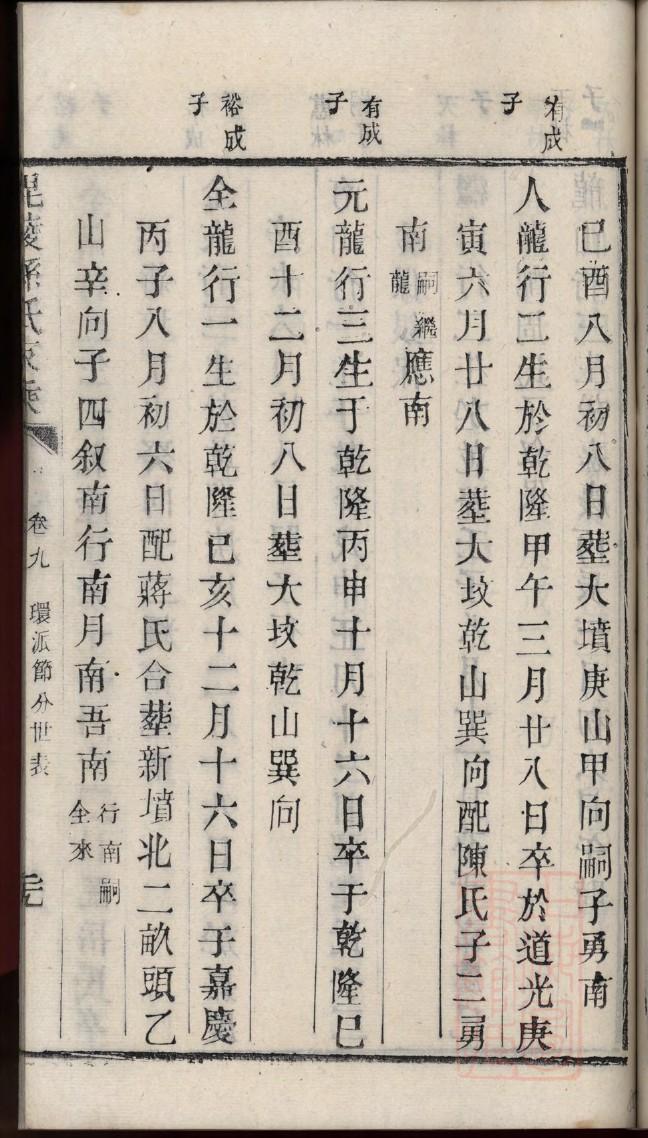 巳酉八月初八日塟大墳庚山甲向嗣子勇南
有成
子
人龍行二生於乾隆甲午三月廿八日卒於道光庚
寅六月廿八日塟大坟乾山巽向配陳氏子二勇
南嗣繼龍應南
有成
子
元龍行三生于乾隆丙申十月十六日卒于乾隆巳
酉十二月初八日塟大坟乾山巽向
裕成
子
全龍行一生於乾隆巳亥十二月十六日卒于嘉慶
丙子八月初六日配蔣氏合塟新墳北二畝頭乙
山辛向子四叙南行南月南吾南行南嗣全來
毘陵孫氏家乘 卷九 環派節分世表